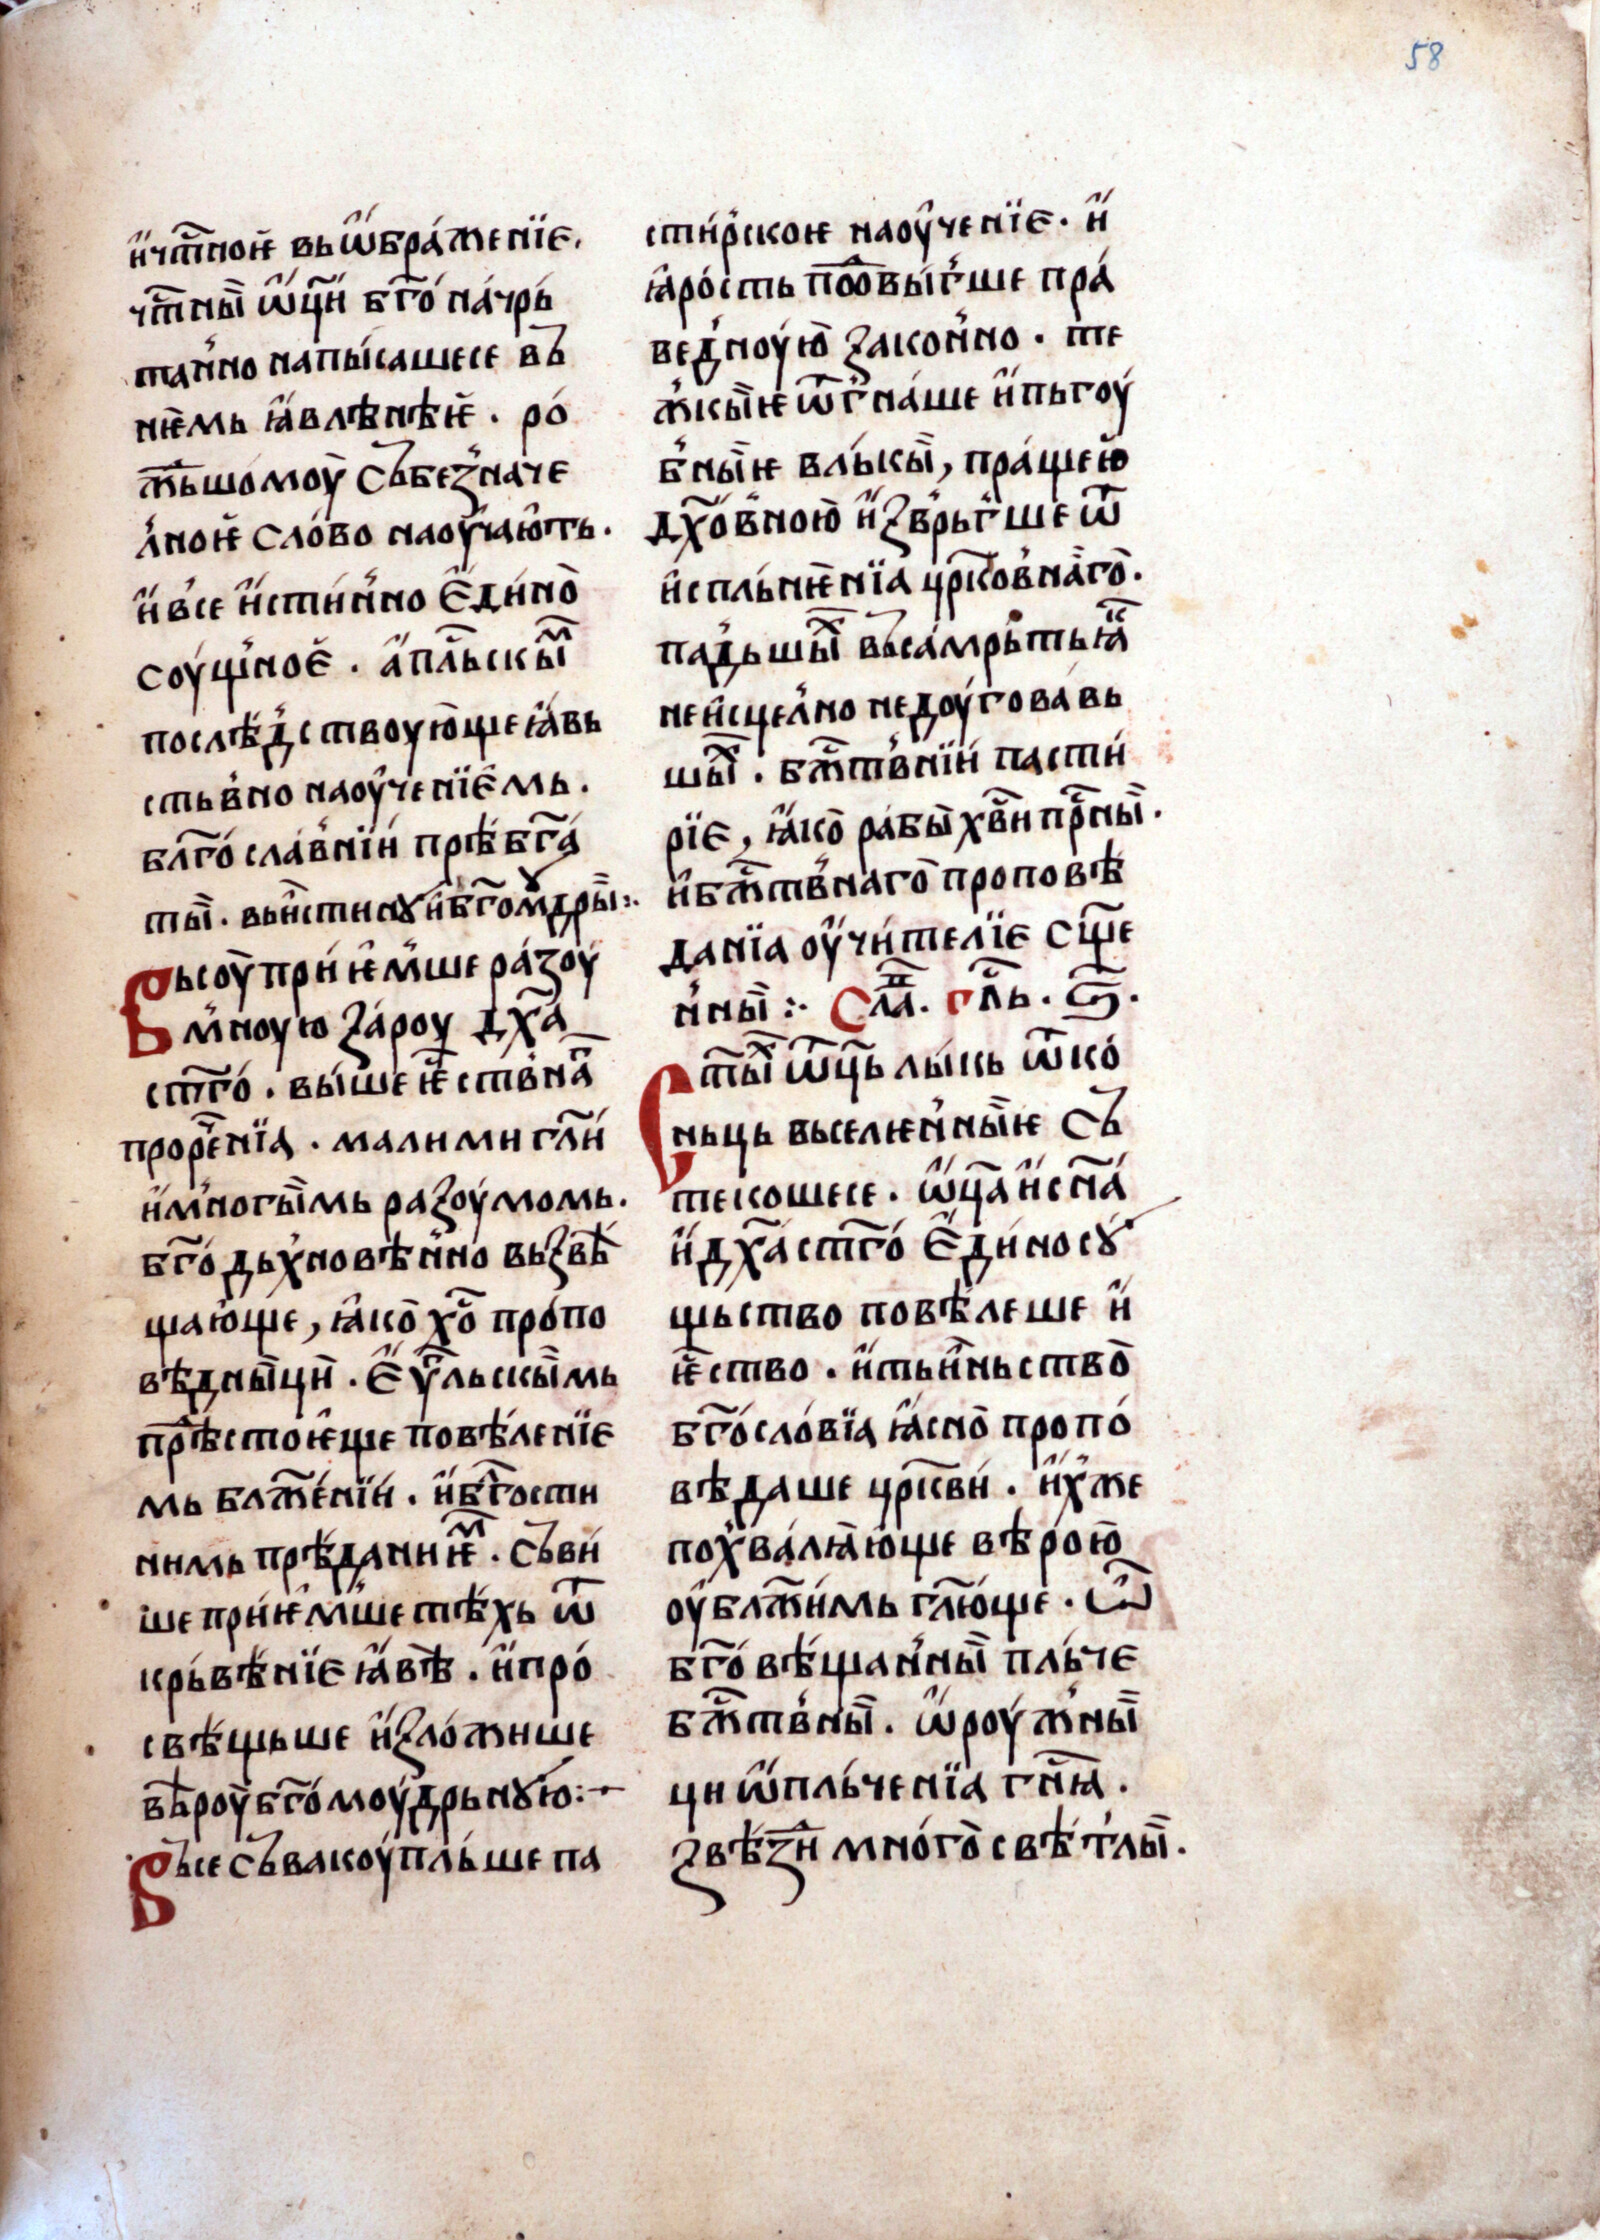 58
и҆́ч҇тⷭноѥ҆̀ вьѡ҆́бра́женїе.
ч҇тⷭны̏и ѡ҆́ц҃и б҃го́ на́чрь
тан̾но напы́сашесе въ
нѥ҆̀мь ꙗ҆́влѣнѣѥ҆̀. ро́
ж҃ьшо́моу̀ събез̾наче
л̾ноѥ҆̀ сло́во наоу҆чаю҆ть.
и҆́ в̾се и҆́сти́н̾но є҆́ди́но̀
соу́щ̾ноѐ. а҆́п҃льскы̏и<sup>м</sup>
послѣ́д̾ствоую҆ще ꙗ҆́вь
стьв̾но наоу҆́ченїє҆мь.
бл҃го́сла́в̾нїи́ прѣ́б҃га́
ты̏и. вьи҆̀стинꙋ и҆́б҃гомꙋ́дры̏и:
Вьсоу̀ прі́иѥ҆м̾ше ра́зоу
м̾ноую за́роу д҃ха
ст҃го́. вы́ше ѥ҆́ств̾на<sup>г</sup>
прорⷱ҇е́нїа. малими гл҃и́
и҆́м̾ногы̏имь разоу́момь.
б҃го́дьх̾новѣн̾но вьз̾вѣ́
щаю҆ще, ꙗ҆́ко̀ хⷭ҇о́ пропо
вѣ́дны̏ицѝ. є҆́ѵ҃льскы̏имь
прⷣѣ́стоѥ҆ще повѣ́ленїе
мь бл҃же́нїи́. и҆́б҃гости
нимь прѣ́даниѥ҆<sup>м</sup>. съви́
ше приѥ҆м̾ше тѣ́хь ѿ
крьвѣ́нїе ꙗ҆́вѣ. и҆́про́
свѣ́щьше и҆́зло́жише
вѣ́роу̀ б҃го́моу́дрьнꙋю:
Въсе съвакоу́пль́ше па
сти́р̾скоѥ наоу҆́ченїе. и҆́
ꙗ҆́ро́сть поⷣвы́г̾ше пра́
вед̾ноую̀ закон̾но. те
ж̾кы̏иѥ ѿг̾на́ше и҆́пьгоу́
б̾ны̏иѥ вль́кы̏и, пра́щею̀
д҃хо́в̾ною̀ и҆́з̾врьг̾ше ѿ
и҆́спль́нѥ́нїа цр҃ков̾на̀го̀.
па́д̾шьы̏и<sup>х</sup> въса́мрьтьꙗ҆́
неи҆́сцел̾но недоу́говавь
шьы̏и<sup>х</sup>. бⷤ҇тв̾нїи́ пасти́
рїе, ꙗ҆́ко̀ ра́бы̏и х҃в̀и пр҃ⷣны̏и.
и҆́бⷤ҇тв̾наго̀ пропо вѣ
данїа оу҆́чи́телїе с҃ще
н̾ны̏и: Сла́<sup>в</sup>. гл҃ь. ѕ҃.
Ст҃ы̏и<sup>х</sup> ѿц҃ь лы́кь ѿко́
ньць вьселѥн̾ны̏иѥ съ
текошесе. ѡ҆́ц҃а и҆́сн҃а
и҆́д҃ха́ст҃го́ є҆́ди́носꙋ
щьство повѣ́леше и҆́
ѥ҆́ство. и҆́тьи҆ньство̀
б҃го́сло́вїа ꙗ҆́сно̀ пропо́
вѣдаше цр҃кви́. и҆́х̾же
пох̾ва́лꙗю҆ще вѣ́рою̀
оу҆́бл҃жи́мь гл҃ю҆ще. ѡ҆̀
б҃го́вѣ́щан̾ны̏и пль́че
бⷤ҇тв̾ны̏и. ѡ҆́роу́ж̾ны̏и
ци ѡ҆́пльченїа гн҃ꙗ.
звѣзⷣи мно́го̀свѣ́т̾лы̏и.